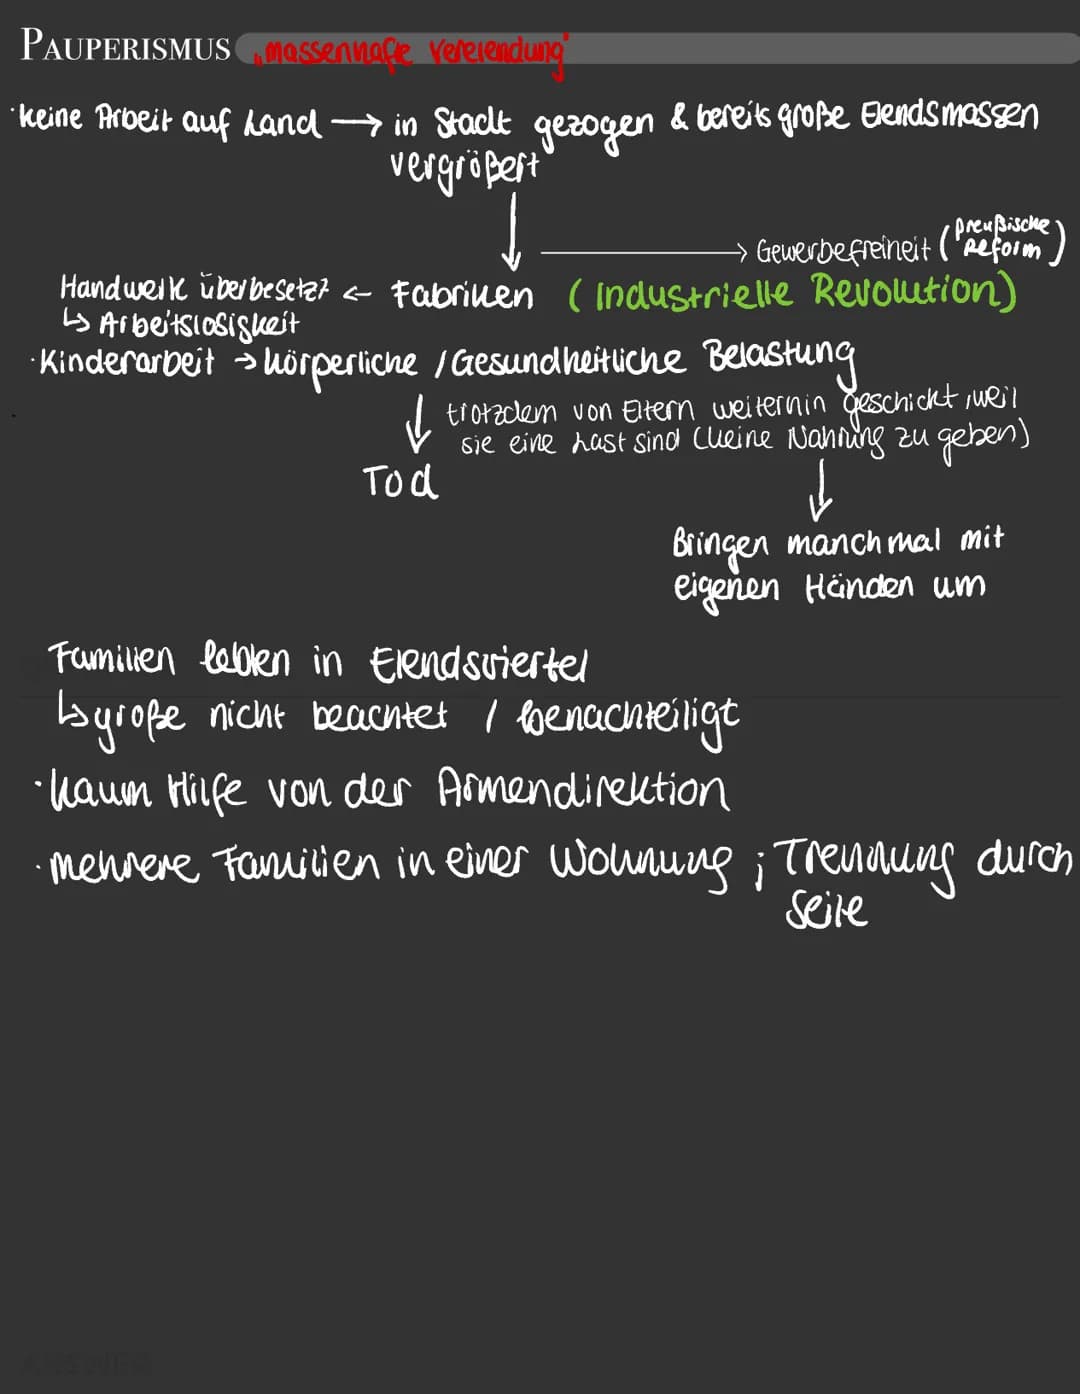 PAUPERISMUS „massenhafte Verelendung"
· keine Arbeit auf Land → in Stadt gezogen & bereits große Elendsmassen
vergrößert
→ Gewerbefreiheit (preußische Reform)
Handwerk überbesetzt ← Fabriken (Industrielle Revolution)
↳ Arbeitslosigkeit
· Kinderarbeit → körperliche / Gesundheitliche Belastung
↓ trotzdem von Eltern weiterhin geschickt, weil
sie eine Last sind (keine Nahrung zu geben)
Tod
↓
Bringen manchmal mit
eigenen Händen um
Familien leben in Elendsviertel
↳ große nicht beachtet / benachteiligt
· kaum Hilfe von der Armendirektion
· mehrere Familien in einer Wohnung ; Trennung durch
Seile